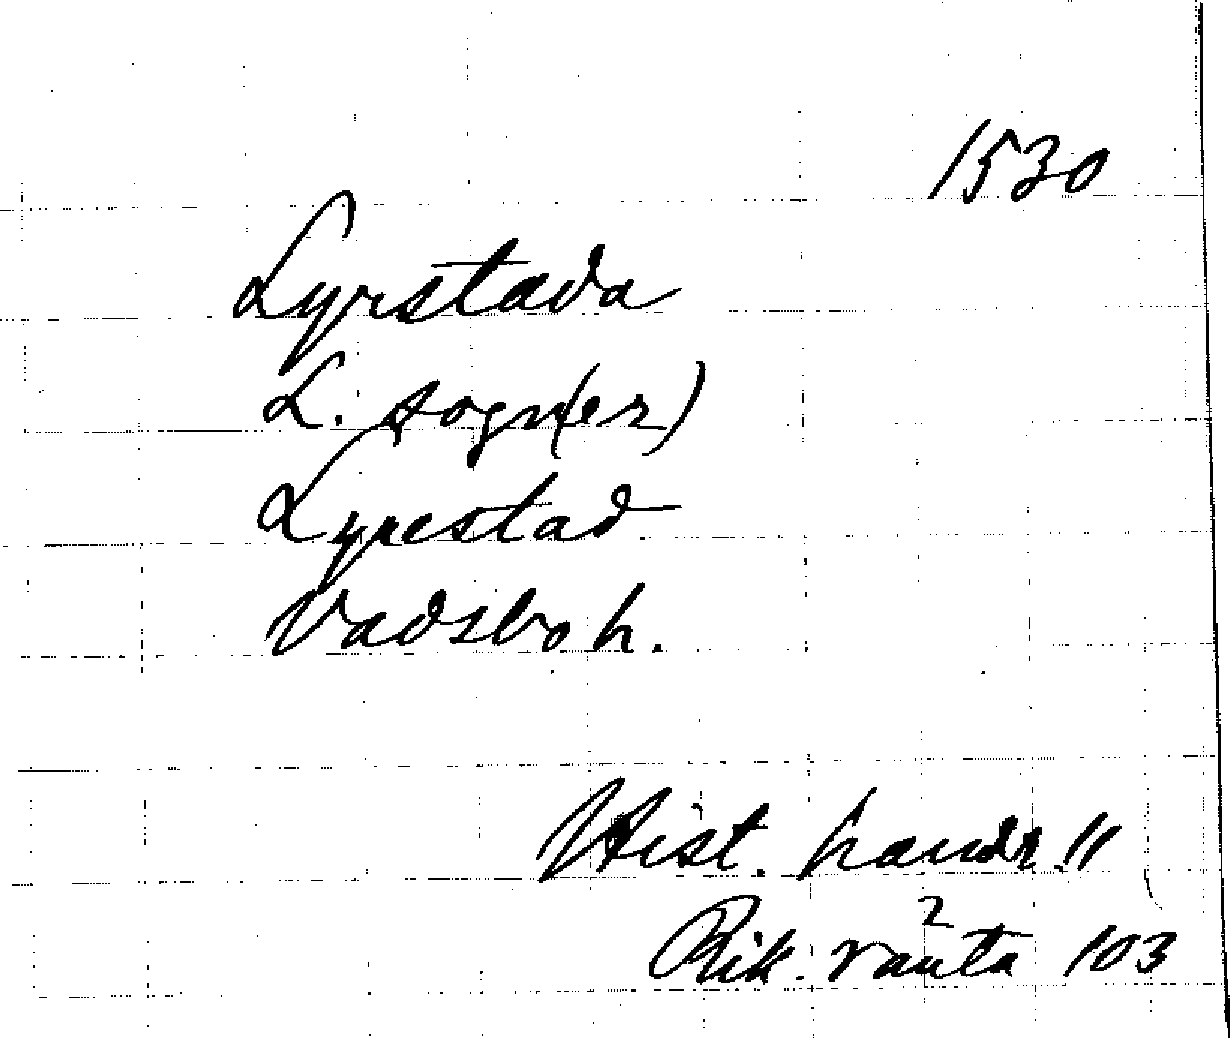 1530
Lyrstada
L. sogn(er)
Lyrestad
Vadsbo h.
Hist. handl. 11
2
Rik. ränta 103